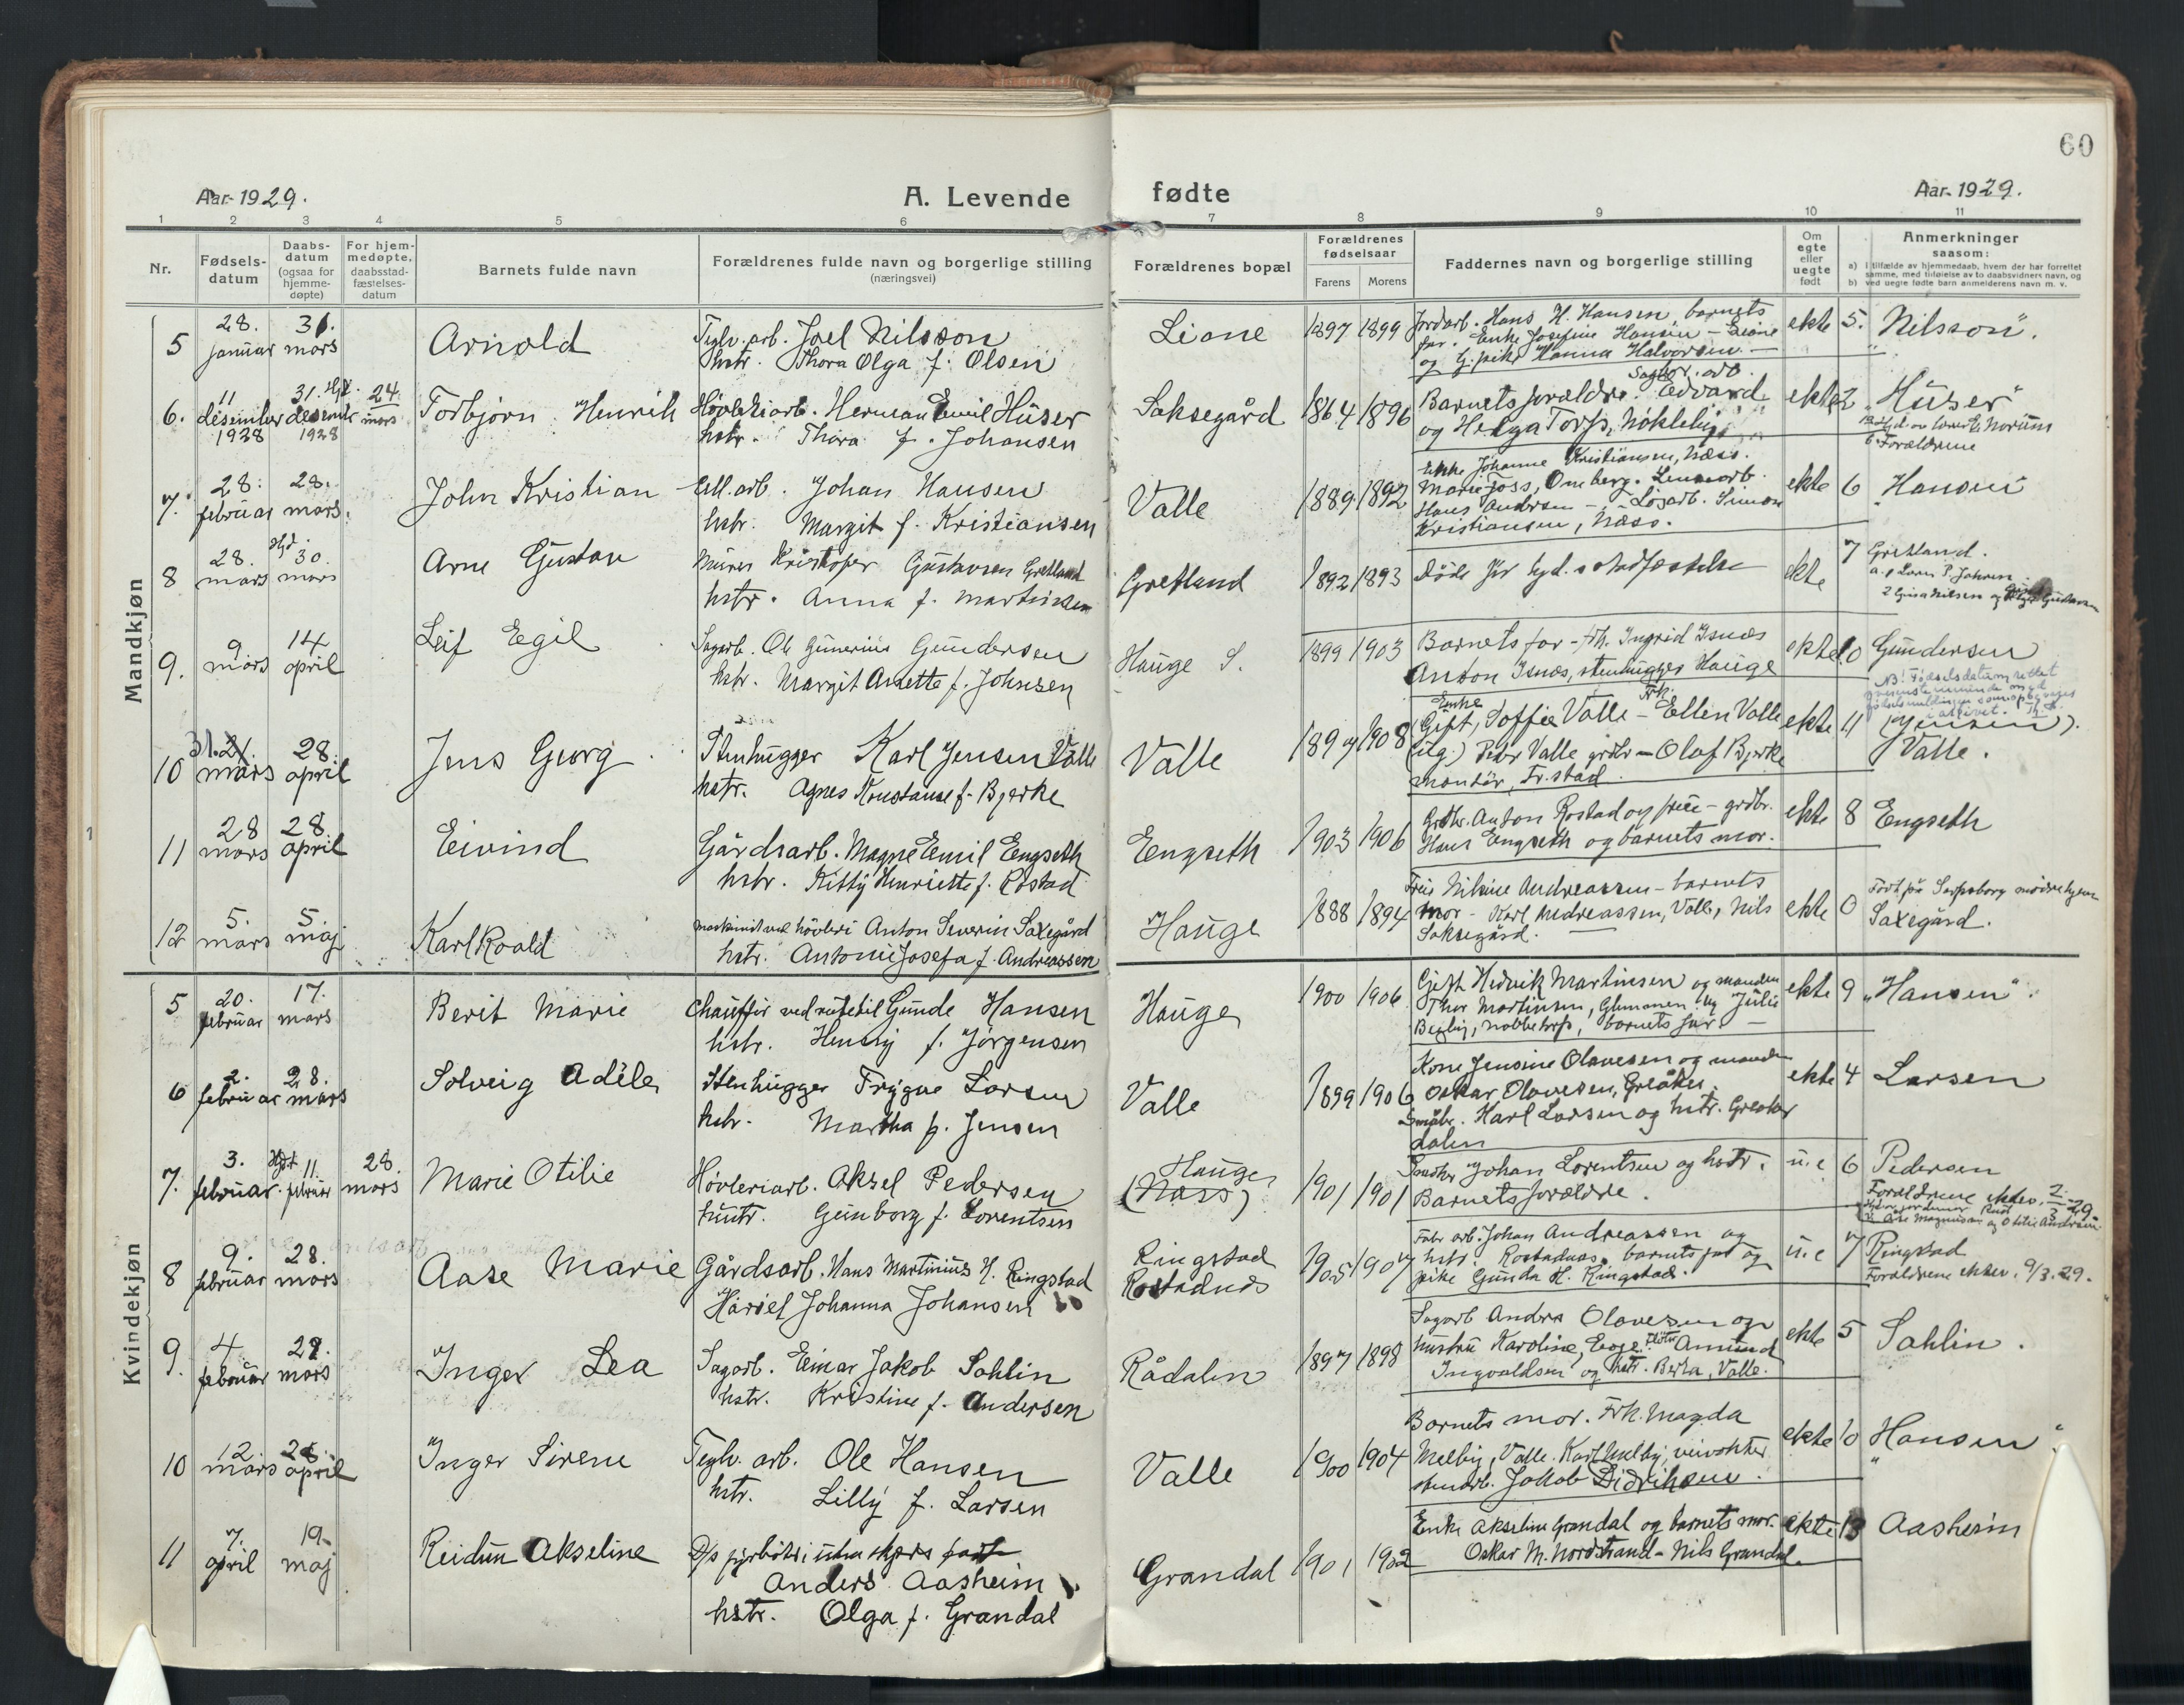 60
Aar 1929.
A. Levende fødte
Aar 1929.
1 2 3 4 5 6 7 8 9 10 11
Nr.
Fødsels-
datum
Daabs-
datum
(ogsaa for
hjemme-
døpte)
For hjem-
medøpte,
daabsstad-
fæstelses-
datum
Barnets fulde navn
Forældrenes fulde navn og borgerlige stilling
(næringsvei)
Forældrenes bopæl
Forældrenes
fødselsaar
Farens Morens
Faddernes navn og borgerlige stilling
Om
egte
eller
uegte
født
Anmerkninger
saasom:
a) i tilfælde av hjemmedaab, hvem der har forrettet
samme, med tilføielse av to daabsvidners navn, og
b) ved uegte fødte barn anmelderens navn m. v.
Mandkjøn
5
28. januar
31. mars
Arnold
Teglv. arb. Joel Nilsson
hstr. Thora Olga f. Olsen
Liane
1897 1899
Jordarb. Hans H. Hansen, barnets
far. Enke Josefine Hansen - Liane
og G. pike Hanna Halvorsen. —
ekte
5. "Nilsson".
6.
11 desember 1928
31. desember 1928
24 mars
Torbjørn Henrik
Høvleriarb. Herman Emil Huser
hstr. Thora f. Johansen
Saksegård
1864 1896
Barnets forældre. Edvard
og Helga Torp, Nøkleby
ekte
2 "Huser"
Forældrene
7.
28. februar
28. mars.
John Kristian
Ell. arb. Johan Hansen
hstr. Margit f. Kristiansen
Valle
1889 1892
Enke Johanne Kristiansen, Næss.
Marie Foss, Omberg.
Hans Andersen - Løsarb. Simon
Kristiansen, Næss.
ekte
6 "Hansen"
8
28. mars
Hjd. 30. mars
Arne Gustav
Murer Kristofer Gustavsen Gretland
hstr. Anna f. Martinsen
Gretland
1892 1893
Døde før hjd. stadfæstelse
ekte
7 Gretland.
9.
9 mars
14 april
Leif Egil
Sagarb. Ole Gunerius Gundersen
hstr. Margit Anette f. Johnsen
Hauge S.
1899 1903
Barnets far - frk. Ingrid Isnæs
Anton Isnæs, stenhugger Hauge
ekte
10 Gundersen
NB! Fødselsdatum rettet
10
31. mars
28. april
Jens Georg
Stenhugger Karl Jensen Valle
hstr. Agnes Konstanse f. Bjerke
Valle
1897 1908
Enke Frk.
Gift, Soffie Valle - Ellen Valle
(ug.) Peder Valle grdbr - Olaf Bjerke
montør, Fr.stad.
ekte
11 (Jensen).
Valle.
11
28 mars
28. april
Eivind
Gårdsarb. Magne Emil Engseth
hstr. Kitty Henriette f. Rostad
Engseth
1903 1906
Grdbr. Anton Rostad og frue - grdbr.
Hans Engseth og barnets mor.
ekte
8 Engseth
12
5. mars
5. maj
Karl Roald
maskinist ved høvleri Anton Severin Saxegård
hstr. Antonie Josefa f. Andreassen
Hauge
1888 1894
Frue Nikine Andreassen - barnets
mor - Karl Andreassen, Valle, Nils
Saksegård.
ekte
0 Født på Sarpsborg mødrehjem
Saxegård.
Kvindekjøn
5
20. februar
17. mars
Berit Marie
Chauffør ved rutebil Gunde Hansen
hstr. Henny f. Jørgensen
Hauge
1900 1906
Gift Hedvik Martinsen og manden
Thor Martinsen, Glemmen og Julie
Begby, Nabbetorp, barnets far. —
ekte
9 "Hansen".
6
2. februar
28. mars
Solveig Adéle
Stenhugger Trygve Larsen
hstr. Martha f. Jensen
Valle
1899 1906
Kone Jensine Olavesen og manden
Oskar Olavesen, Greåker.
Småbr. Karl Larsen og hstr. Greåker
dalen
ekte
4 Larsen
7.
3. februar.
Hjd. 11. februar
28. mars
Marie Otilie
Høvleriarb. Aksel Pedersen
hustr. Gunborg f. Lorentsen
Hauge
(Næss)
1901 1901
Småbr Johan Lorentsen og hstr.
Barnets forældre.
u. e
6 Pedersen
Forældrene ektev. 2/3 29.
8
9. februar
28. mars
Aase Marie
Gårdsarb. Hans Martinius H. Ringstad
Harriet Johanna Johansen
Ringstad
Rostadnes
1905 1907
Fabr arb. Johan Andreassen og
hstr. Rostadnes, barnets far og
pike Gunda H. Ringstad.
u. e
7 Ringstad
Forældrene ektev. 9/3. 29.
9.
4 februar
29. mars
Inger Lea
Sagarb. Einar Jakob Sahlin
hstr. Kristine f. Andersen
Rådalen
1897 1898
Sagarb Anders Olavesen og
hustru Karoline, Evje. Amund
Ingvaldsen og hstr. Berta, Valle.
ekte
5 Sahlin.
10
12. mars
28 april
Inger Sirene
Teglv. arb. Ole Hansen
hstr. Lilly f. Larsen
Valle
1900 1904
Barnets mor. Frk. Magda
Melby, Valle. Karl Melby, veivokter
stenarb. Jakob Didriksen.
ekte
10 "Hansen"
11
7. april
19. maj
Reidun Akseline
D/s fyrbøter i utenskjærs fart
Anders Aasheim
hstr. Olga f. Grandal
Grandal
1901 1902
Enke Akseline Grandal og barnets mor.
Oskar M. Nordstrand - Nils Grandal.
ekte
13 Aasheim